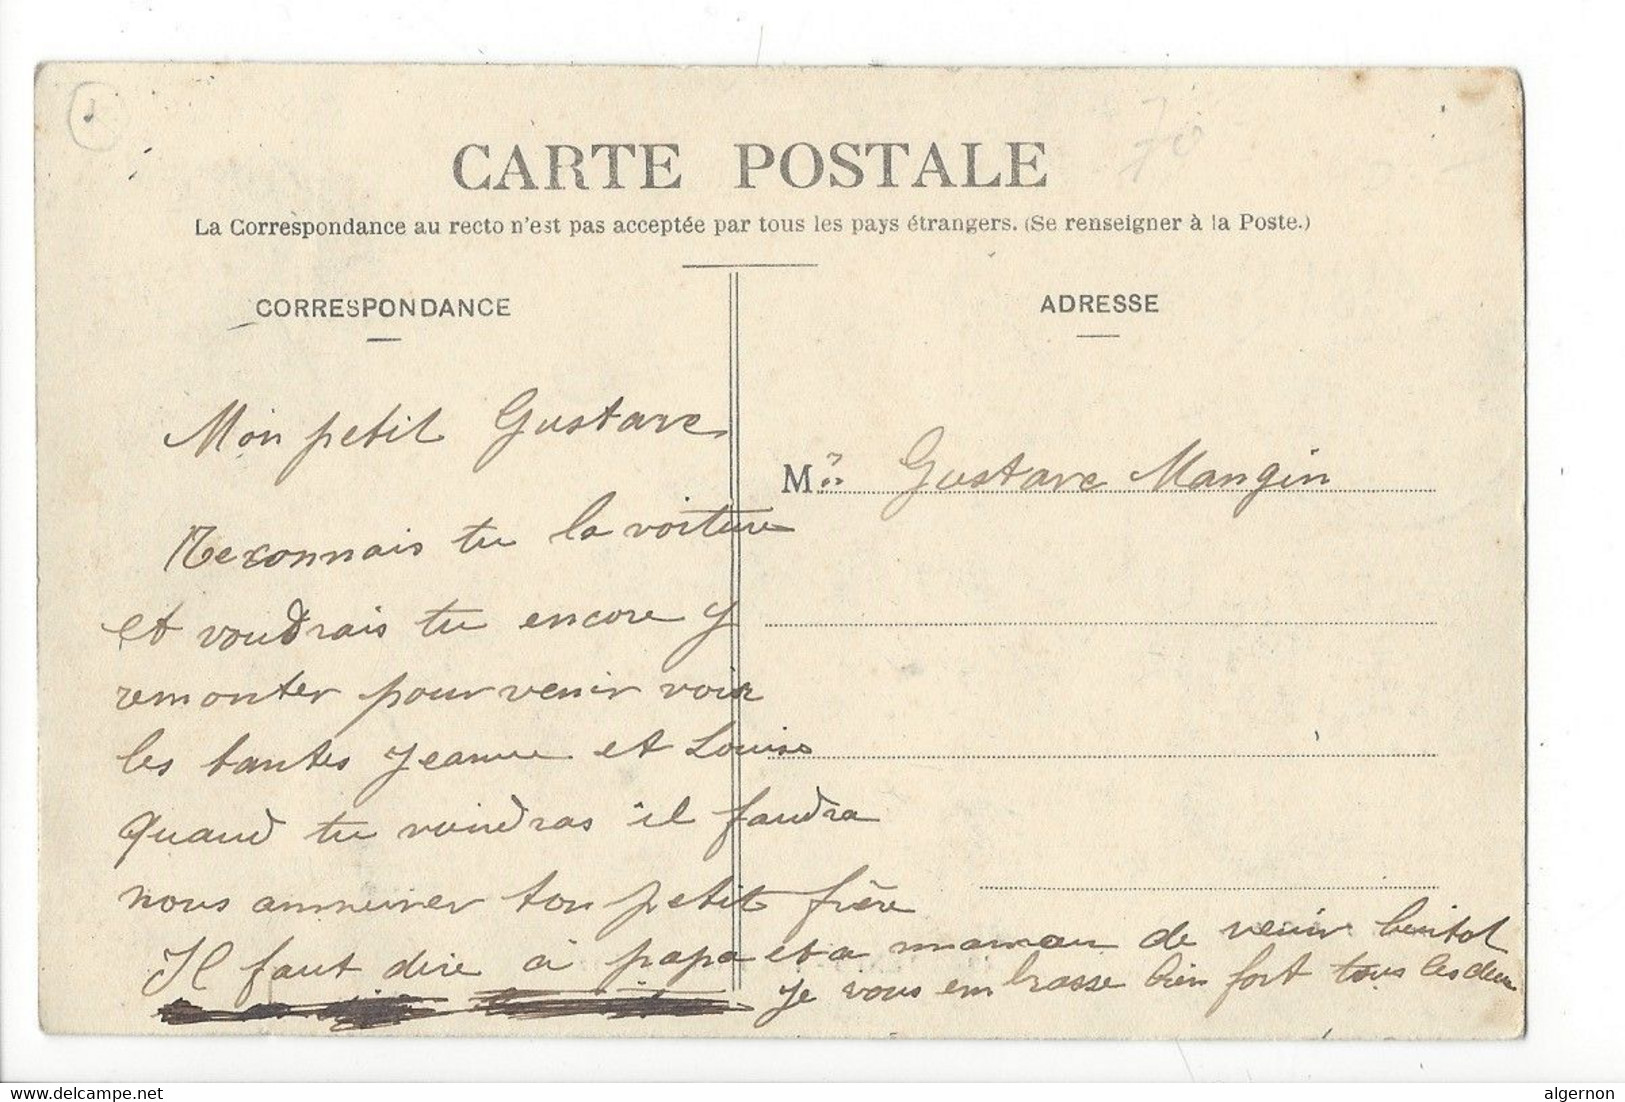 CARTE POSTALE
La Correspondance au recto n'est pas acceptée par tous les pays étrangers. (Se renseigner à la Poste.)
CORRESPONDANCE
Mon petit Gustave
Reconnais tu la voiture
et voudrais tu encore y
remonter pour venir voir
les tantes Jeanne et Louise
Quand tu viendras il faudra
nous ammener ton petit frère
Il faut dire à papa et a maman de venir bientot
je vous embrasse bien fort tous les deux
ADRESSE
M Gustave Mangin
70
www.delcampe.net
algernon